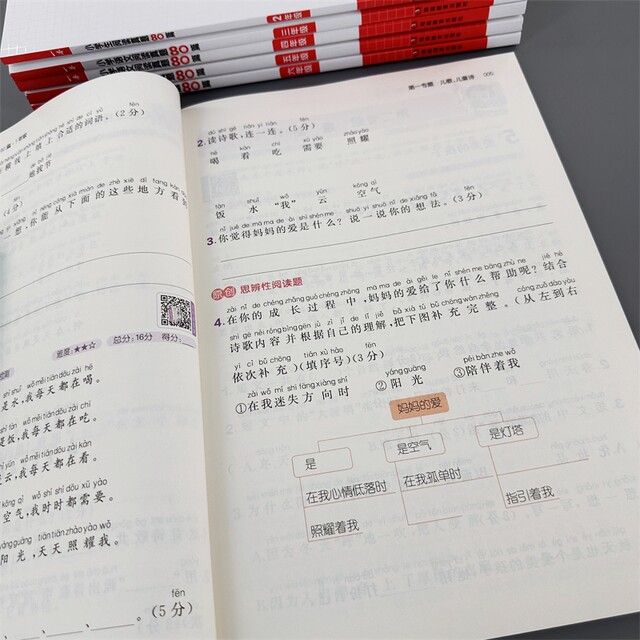 小学语文阅读真题80篇
2年级
小学语文阅读真题80篇
三年级
小学语文阅读真题80篇
四年级
小学语文阅读真题80篇
五年级
六年级
填上合适的词语。(2分)
想,你能从下面的这些地方看到
(4分)
难度:★★☆ 总分:16分 得分:
是水,我每天都在喝。
是饭,我每天都在吃。
是云,我每天都在看。
空气,我时时都需要。
阳光,天天照耀我。
、 、 。(5分)
第一专题 儿歌、儿童诗 005
dú shī gē lián yì lián fēn
2.读诗歌,连一连。(5分)
hē kàn chī xū yào zhào yào
喝 看 吃 需要 照耀
fàn shuǐ wǒ yún kōng qì
饭 水 “我” 云 空气
nǐ jué de mā ma de ài shì shén me shuō yì shuō nǐ de xiǎng fǎ fēn
3.你觉得妈妈的爱是什么?说一说你的想法。(3分)
原创 思辨性阅读题
zài nǐ de chéng zhǎng guò chéng zhōng mā ma de ài gěi le nǐ shén me bāng zhù ne jié hé
4.在你的成长过程中,妈妈的爱给了你什么帮助呢?结合
shī gē nèi róng bìng gēn jù zì jǐ de lǐ jiě bǎ xià tú bǔ chōng wán zhěng cóng zuǒ dào yòu
诗歌内容并根据自己的理解,把下图补充完整。(从左到右
yī cì bǔ chōng tián xù hào fēn
依次补充)(填序号)(3分)
zài wǒ mí shī fāng xiàng shí yáng guāng péi bàn zhe wǒ
①在我迷失方向时 ②阳光 ③陪伴着我
妈妈的爱
是 是空气 是灯塔
在我心情低落时 在我孤单时
照耀着我 指引着我